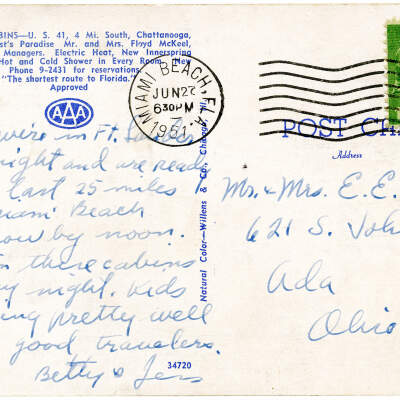 BINS—U. S. 41, 4 Mi. South, Chattanooga,
st's Paradise Mr. and Mrs. Floyd McKeel,
Managers. Electric Heat, New Innerspring
Hot and Cold Shower in Every Room. New
Phone 9-2431 for reservations.
"The shortest route to Florida."
Approved
AAA
MIAMI BEACH, FLA.
JUN 27
630 PM
1951
We're in Ft.
night and are ready
last 25 miles
iami Beach
now by noon.
in these cabins
ay night. Kids
ing pretty well
good travelers.
Betty & Jens
Natural Color—Willens & Co., Chicago, Ill.
34720
POST CA
Address
Mr. & Mrs. E. E.
621 S. Joh
Ada
Ohio